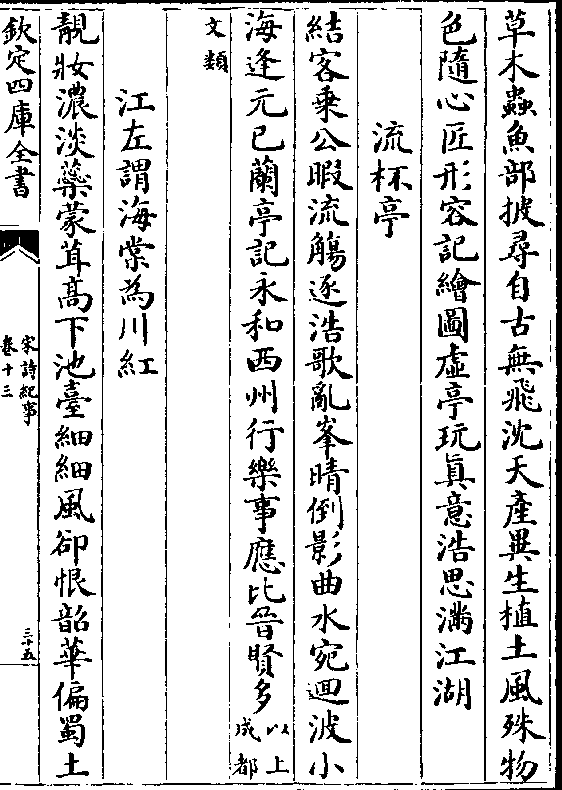 草木蟲魚部披尋自古無飛沈天產異生植土風殊物
色隨心匠形容記繪圖虛亭玩真意浩思滿江湖
流杯亭
結客乘公暇流觴逐浩歌亂峯晴倒影曲水宛迴波小
海逢元巳蘭亭記永和西州行樂事應比晉賢多以上成都
文類
江左謂海棠為川紅
靚妝濃淡蘂蒙茸高下池臺細細風卻恨韶華偏蜀土
欽定四庫全書
宋詩紀事
卷十三
三十五